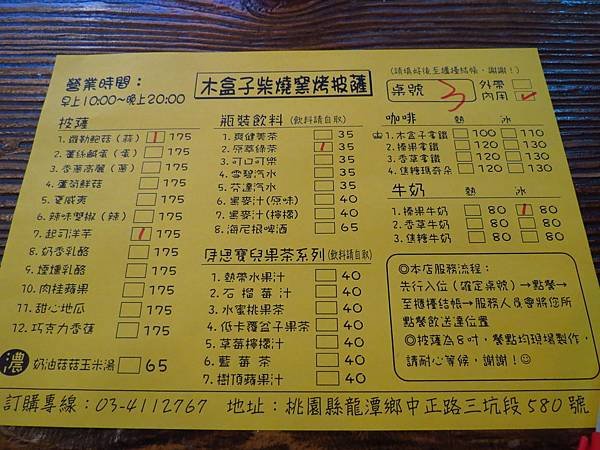 營業時間：
早上10:00～晚上20:00
木盒子柴燒窯烤披薩
(請填好後至櫃檯結帳，謝謝！)
桌號 3
外帶
內用 ✓
披薩
1. 羅勒鮑菇（蒜） 1 175
2. 薑絲鹹蛋（蛋） 175
3. 香蔥高麗（蔥） 175
4. 蘆筍鮮菇 175
5. 夏威夷 175
6. 辣味雙椒（辣） 175
7. 起司洋芋 1 175
8. 奶香乳酪 175
9. 煙燻乳酪 175
10. 肉桂蘋果 175
11. 甜心地瓜 175
12. 巧克力香蕉 175
濃 奶油菇菇玉米湯 65
瓶裝飲料（飲料請自取）
1. 爽健美茶 35
2. 原萃綠茶 1 35
3. 可口可樂 35
4. 雪碧汽水 35
5. 芬達汽水 35
6. 蜜麥汁（原味） 40
7. 蜜麥汁（檸檬） 40
8. 海尼根啤酒 65
貝思寶兒果茶系列（飲料請自取）
1. 熱帶水果汁 40
2. 石榴莓汁 40
3. 水蜜桃果茶 40
4. 低卡覆盆子果茶 40
5. 草莓檸檬汁 40
6. 藍莓茶 40
7. 樹頂蘋果汁 40
咖啡 熱 冰
1. 木盒子拿鐵 100 110
2. 榛果拿鐵 120 130
3. 香草拿鐵 120 130
4. 焦糖瑪奇朵 120 130
牛奶 熱 冰
1. 榛果牛奶 80 1 80
2. 香草牛奶 80 80
3. 焦糖牛奶 80 80
◎本店服務流程：
先行入位（確定桌號）→點餐→
至櫃檯結帳→服務人員會將您所
點餐飲送達位置
◎披薩為8吋，餐點均現場製作，
請耐心等候，謝謝！☺
訂購專線：03-4112767 地址：桃園縣龍潭鄉中正路三坑段580號